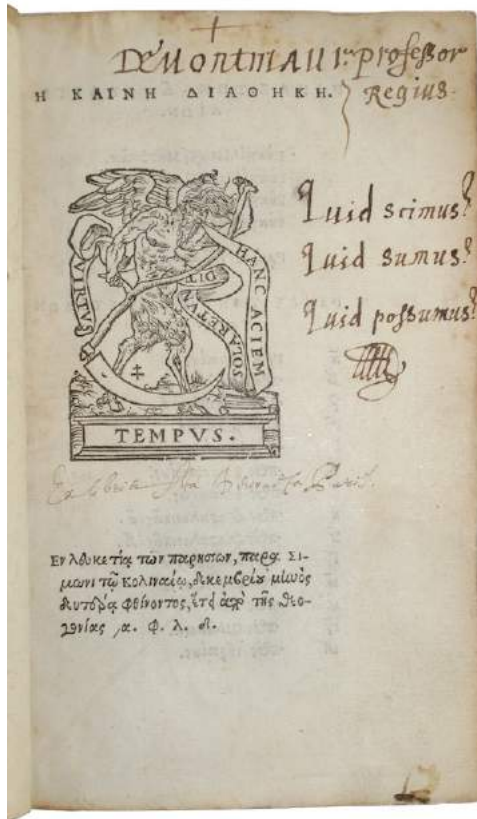 De Montmaur professor
Η ΚΑΙΝΗ ΔΙΑΘΗΚΗ.
Regius.
Quid scimus?
Quid sumus?
Quid possumus?
VIRTUS
HANC ACIEM
SOLA RETUN
DIT
TEMPVS.
Ex
Εν λευκετίᾳ τῶν παρησίων, παρὰ Σι-
μωνι τῷ Κολιναίῳ, δεκεμβρίου μηνὸς
δευτέρᾳ φθίνοντος, ἔτει ἀπὸ τῆς θεο-
γονίας α. φ. λ. δ.